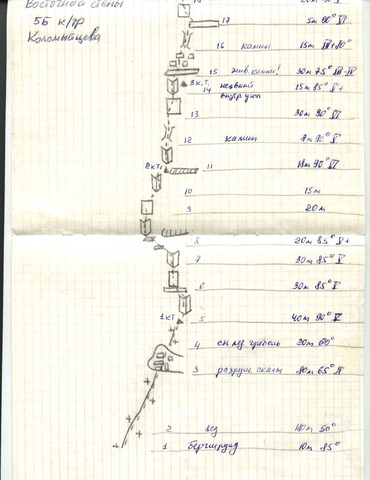 Восточной стены
5Б к/тр
Коломыйцева
17 5м 90° VI
16 камин 15м IV+ 80°
15 жив. камни! 30м 75° III-IV
3 к.т.
14 15м 85° V+
13 30м 90° VI
12 камин 8м 90° V
2 кт
11 18м 90° VI
10 15м
9 20м
8 20м 85° V+
7 30м 85° V
6 30м 85° V
1 кт
5 40м 90° V
4 сн лед гребень 30м 60°
3 разруш. скалы 80м 65° IV
2 лед 140м 50°
1 бергшрунд 10м 85°